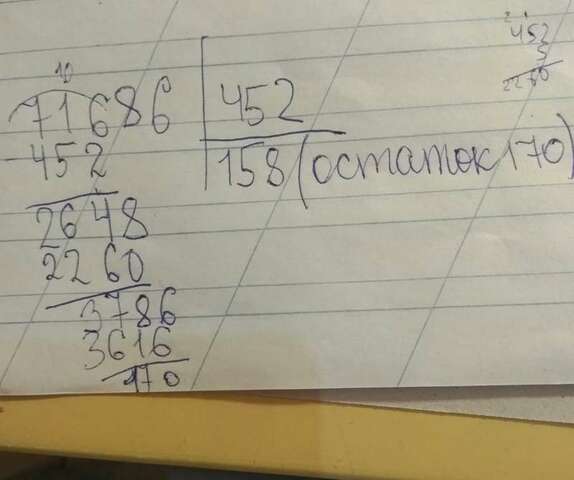 10
71686 452
-452 158(остаток 170)
2648
2260
3786
3616
170
2 1
452
5
2260